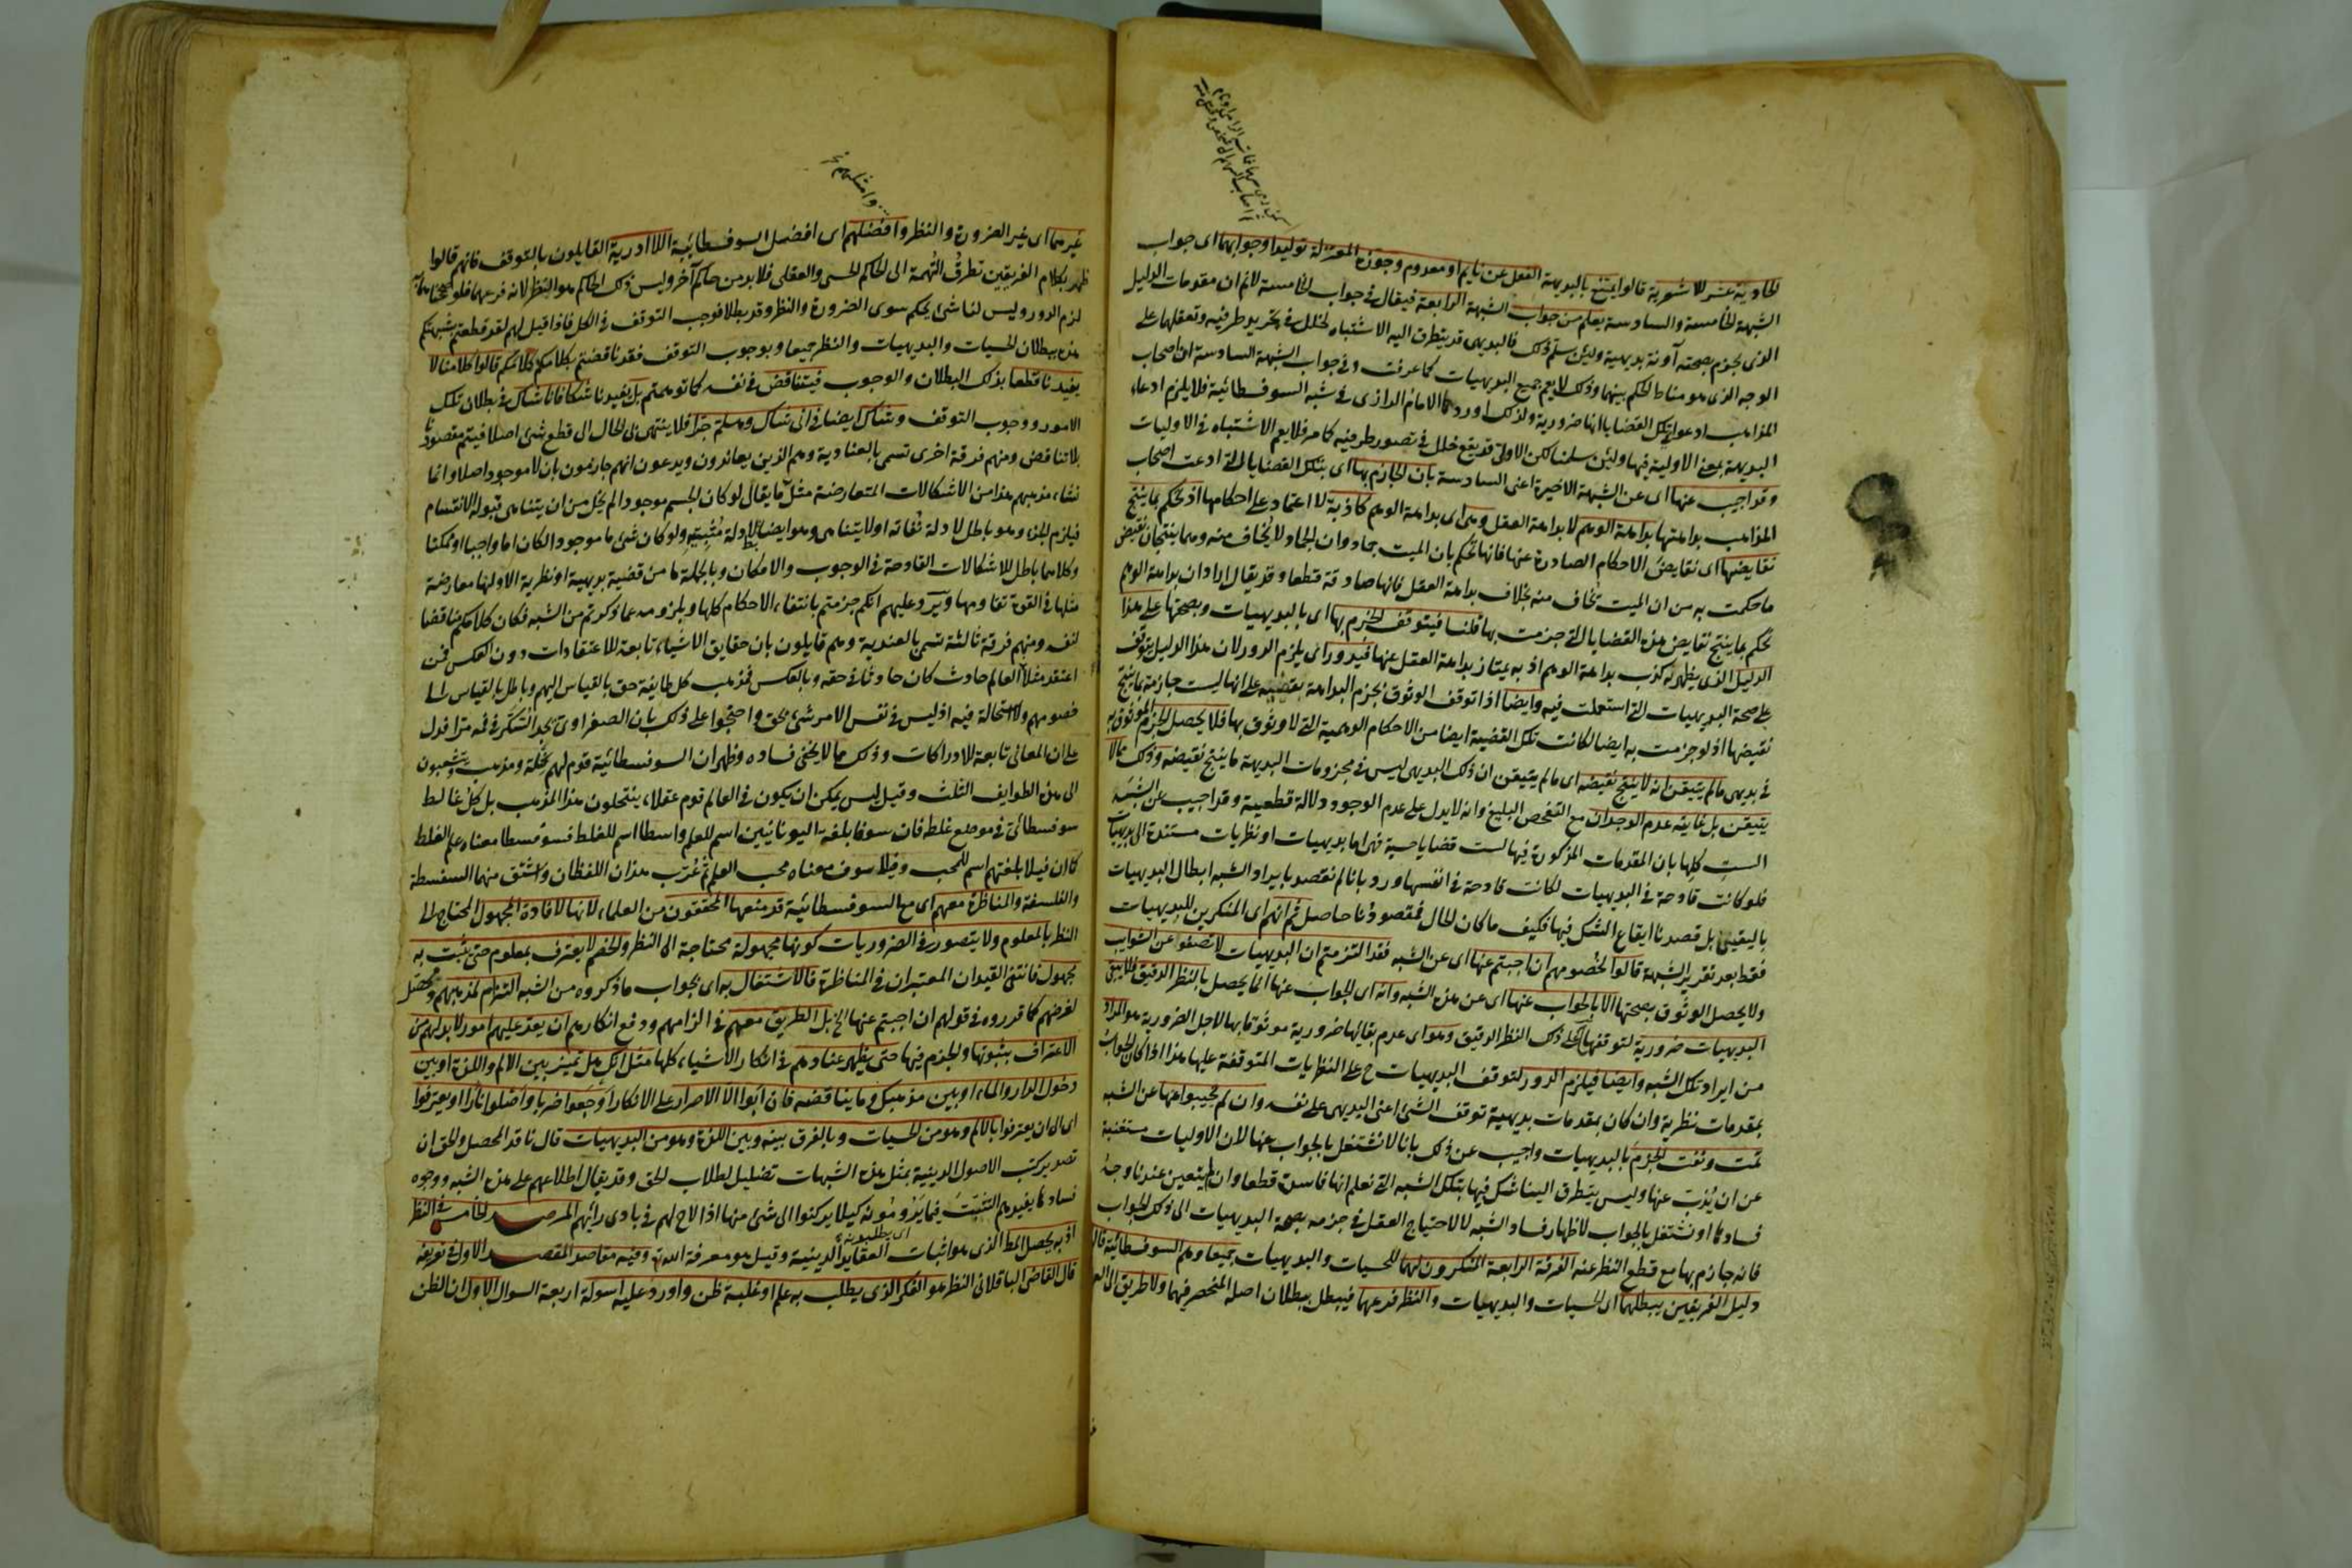 الحادية عشر للاشعرية قالوا يمتنع بالبديهة الفعل عن نايم او معدوم وجوزه المعتزلة توليدا وجوابهما اى جواب
الشبهة الخامسة والسادسة يعلم من جواب الشبهة الرابعة فيقال فى جواب الخامسة لانم ان مقدمات الدليل
الذى يجزم بصحته آونة بديهية ولئن سلم ذلك فالبديهى قد يتطرق اليه الاشتباه لخلل فى تجريد طرفيه وتعقلها على
الوجه الذى هو مناط الحكم بينهما وذلك لا يعم جميع البديهيات كما عرفت وفى جواب الشبهة السادسة ان اصحاب
المذاهب ادعوا فى تلك القضايا انها ضرورية ولذلك اوردها الامام الرازى فى شبه السوفسطائية فلا يلزم ادعاء
البديهة بمعنى الاولية فيها ولئن سلمنا لكن الاولى قد يقع خلل فى تصور طرفيه كما مر فلا يعم الاشتباه فى الاوليات
وقد اجيب عنها اى عن الشبهة الاخيرة اعنى السادسة بان الجازم بها اى بتلك القضايا التى ادعت اصحاب
المذاهب بداهتها بداهة الوهم لا بداهة العقل وهى اى بداهة الوهم كاذبة لا اعتماد على احكامها اذ تحكم بما ينتج
نقايضها اى نقايض الاحكام الصادرة عنها فانها تحكم بان الميت جماد وان الجماد لا يخاف منه وهما ينتجان نقيض
ما حكمت به من ان الميت يخاف منه بخلاف بداهة العقل فانها صادقة قطعا وقد يقال اراد ان بداهة الوهم
تحكم بما ينتج نقايض هذه القضايا التى جزمت بها قلنا فيتوقف الجزم بها اى بالبديهيات وبصحتها على هذا
الدليل الذى يظهر به كذب بداهة الوهم اذ به يمتاز بداهة العقل عنها فيدور اى يلزم الدور لان هذا الدليل يتوقف
على صحة البديهيات التى استعملت فيه وايضا اذا توقف الوثوق بجزم البداهة بقضية على انها ليست جازمة بما ينتج
نقيضها اذ لو جزمت به ايضا لكانت تلك القضية ايضا من الاحكام الوهمية التى لا وثوق بها فلا يحصل الجزم الموثوق به
فى بديهى ما لم يتيقن انه لا ينتج نقيضه اى ما لم يتيقن ان ذلك البديهى ليس فى مجزومات البديهة ما ينتج نقيضه وذلك مما لا
يتيقن بل غايته عدم الوجدان مع التفحص البليغ وانه لا يدل على عدم الوجود دلالة قطعية وقد اجيب عن الشبه
الست كلها بان المقدمات المذكورة فيها ليست قضايا حسية فهى اما بديهيات او نظريات مستندة الى بديهيات
فلو كانت قادحة فى البديهيات لكانت قادحة فى انفسها ورد بانا لم نقصد بايراد الشبه ابطال البديهيات
باليقين بل قصدنا ايقاع الشك فيها فكيف ما كان الحال فمقصودنا حاصل ثم انهم اى المنكرين للبديهيات
فقط بعد تقرير الشبهة قالوا لخصومهم ان اجبتم عنها اى عن الشبه فقد التزمتم ان البديهيات لا تصفو عن الشوايب
ولا يحصل الوثوق بصحتها الا بالجواب عنها اى عن هذه الشبه وانه اى الجواب عنها انما يحصل بالنظر الدقيق فلا يبقى
البديهيات ضرورية لتوقفها على ذلك النظر الدقيق وهو اى عدم بقائها ضرورية موثوقا بها لاجل الضرورية هو المراد
من ايراد تلك الشبه وايضا فيلزم الدور لتوقف البديهيات ح على النظريات المتوقفة عليها هذا اذا كان الجواب
بمقدمات نظرية وان كان بمقدمات بديهية توقف الشئ اعنى البديهى على نفسه وان لم تجيبوا عنها عن الشبه
تمت ونفت الجزم بالبديهيات واجيب عن ذلك بانا لا نشتغل بالجواب عنها لان الاوليات مستغنية
عن ان يذب عنها وليس يتطرق الينا شك فيها بتلك الشبه التى نعلم انها فاسدة قطعا وان لم يتعين عندنا وجه
فسادها او نشتغل بالجواب لاظهار فساد الشبه لا لاحتياج العقل فى جزمه بصحة البديهيات الى ذلك الجواب
فانه جازم بها مع قطع النظر عنه الفرقة الرابعة المنكرون لهما للحسيات والبديهيات جميعا وهم السوفسطائية قالوا
دليل الفريقين يبطلهما اى الحسيات والبديهيات والنظر فرعهما فيبطل ببطلان اصله المنحصر فيهما ولا طريق الى العلم
وامثلهم نخ
غيرهما اى غير الضرورة والنظر وافضلهم اى افضل السوفسطائية اللاادرية القايلون بالتوقف فانهم قالوا
ظهر بكلام الفريقين تطرق التهمة الى الحاكم الحسى والعقلى فلا بد من حاكم آخر وليس ذلك الحاكم هو النظر لانه فرعهما فلو صححناهما به
لزم الدور وليس لنا شئ يحكم سوى الضرورة والنظر وقد بطلا فوجب التوقف فى الكل فاذا قيل لهم لقد قطعتم بشبهتكم
هذه ببطلان الحسيات والبديهيات والنظر جميعا وبوجوب التوقف فقد ناقضتم بكلامكم كلامكم قالوا كلامنا لا
يفيدنا قطعا بذلك البطلان والوجوب فيتناقض فى نفسه كما توهمتم بل يفيدنا شكا فانا شاك فى بطلان تلك
الامور ووجوب التوقف وشاك ايضا فى انى شاك وهلم جرا فلا ينتهى بى الحال الى قطع شئ اصلا فيتم مقصودنا
بلا تناقض ومنهم فرقة اخرى تسمى بالعنادية وهم الذين يعاندون ويدعون انهم جازمون بان لا موجود اصلا وانما
نشاء مذهبهم هذا من الاشكالات المتعارضة مثل ما يقال لو كان الجسم موجودا لم يخل من ان يتناهى قبوله الانقسام
فيلزم الجزء وهو باطل لادلة نفاته او لا يتناهى وهو ايضا باطل لادلة مثبتيه ولو كان شئ ما موجودا لكان اما واجبا او ممكنا
وكلاهما باطل للاشكالات القادحة فى الوجوب والامكان وبالجملة ما من قضية بديهية او نظرية الا ولها معارضة
مثلها فى القوة تقاومها ويرد عليهم انكم جزمتم بانتفاء الاحكام كلها ويلزومه عما ذكرتم من الشبه فكان كلامكم مناقضا
لنفسه ومنهم فرقة ثالثة تسمى بالعندية وهم قايلون بان حقايق الاشياء تابعة للاعتقادات دون العكس فمن
اعتقد مثلا العالم حادث كان حادثا فى حقه وبالعكس فمذهب كل طايفة حق بالقياس اليهم وباطل بالقياس الى
خصومهم ولا استحالة فيه اذ ليس فى نفس الامر شئ بحق واحتجوا على ذلك بان الصفراوى يجد السكر فى فمه مرا فدل
على ان المعانى تابعة للادراكات وذلك مما لا يخفى فساده وظهر ان السوفسطائية قوم لهم نحلة ومذهب ويتشعبون
الى هذه الطوايف الثلث وقيل ليس يمكن ان يكون فى العالم قوم عقلاء ينتحلون هذا المذهب بل كل غالط
سوفسطائى فى موضع غلطه فان سوفا بلغة اليونانيين اسم للعلم واسطا اسم للغلط فسوفسطا معناه علم الغلط
كما ان فيلا بلغتهم اسم للمحب وفيلاسوف معناه محب العلم ثم عرب هذان اللفظان واشتق منهما السفسطة
والفلسفة والمناظرة معهم اى مع السوفسطائية قد منعها المحققون من العلماء لانها لافادة المجهول المحتاج الى
النظر بالمعلوم ولا يتصور فى الضروريات كونها مجهولة محتاجة الى النظر والخصم لا يعترف بمعلوم حتى يثبت به
مجهول فانتفى القيدان المعتبران فى المناظرة فالاشتغال به اى بجواب ما ذكروه من الشبه التزام لمذهبهم ومحصل
لغرضهم كما قرروه فى قولهم ان اجبتم عنها الخ بل الطريق معهم فى الزامهم ودفع انكارهم ان يعد عليهم امور لا بد لهم من
الاعتراف بثبوتها والجزم فيها حتى يظهر عنادهم فى انكار الاشياء كلها مثل انك هل تميز بين الالم واللذة او بين
دخول الدار والماء او بين مذهبك وما يناقضه فان ابوا الا الاصرار على الانكار اوجعوا ضربا واصلوا نارا او يعترفوا
اى الى ان يعترفوا بالالم وهو من الحسيات وبالفرق بينه وبين اللذة وهو من البديهيات قال ناقد المحصل والحق ان
تصدير كتب الاصول الدينية بمثل هذه الشبهات تضليل لطلاب الحق وقد يقال اطلاعهم على هذه الشبه ووجوه
فسادها يفيدهم التثبت فيما يرومونه كيلا يركنوا الى شئ منها اذا لاح لهم فى بادى رائهم المرصد الخامس فى النظر
اذ به يحصل المط الذى هو اثبات العقايد الدينية وقيل هو معرفة الله وفيه مقاصد المقصد الاول فى تعريفه
قال القاضى الباقلانى النظر هو الفكر الذى يطلب به علم او غلبة ظن واورد عليه اسولة اربعة السوال الاول ان الظن